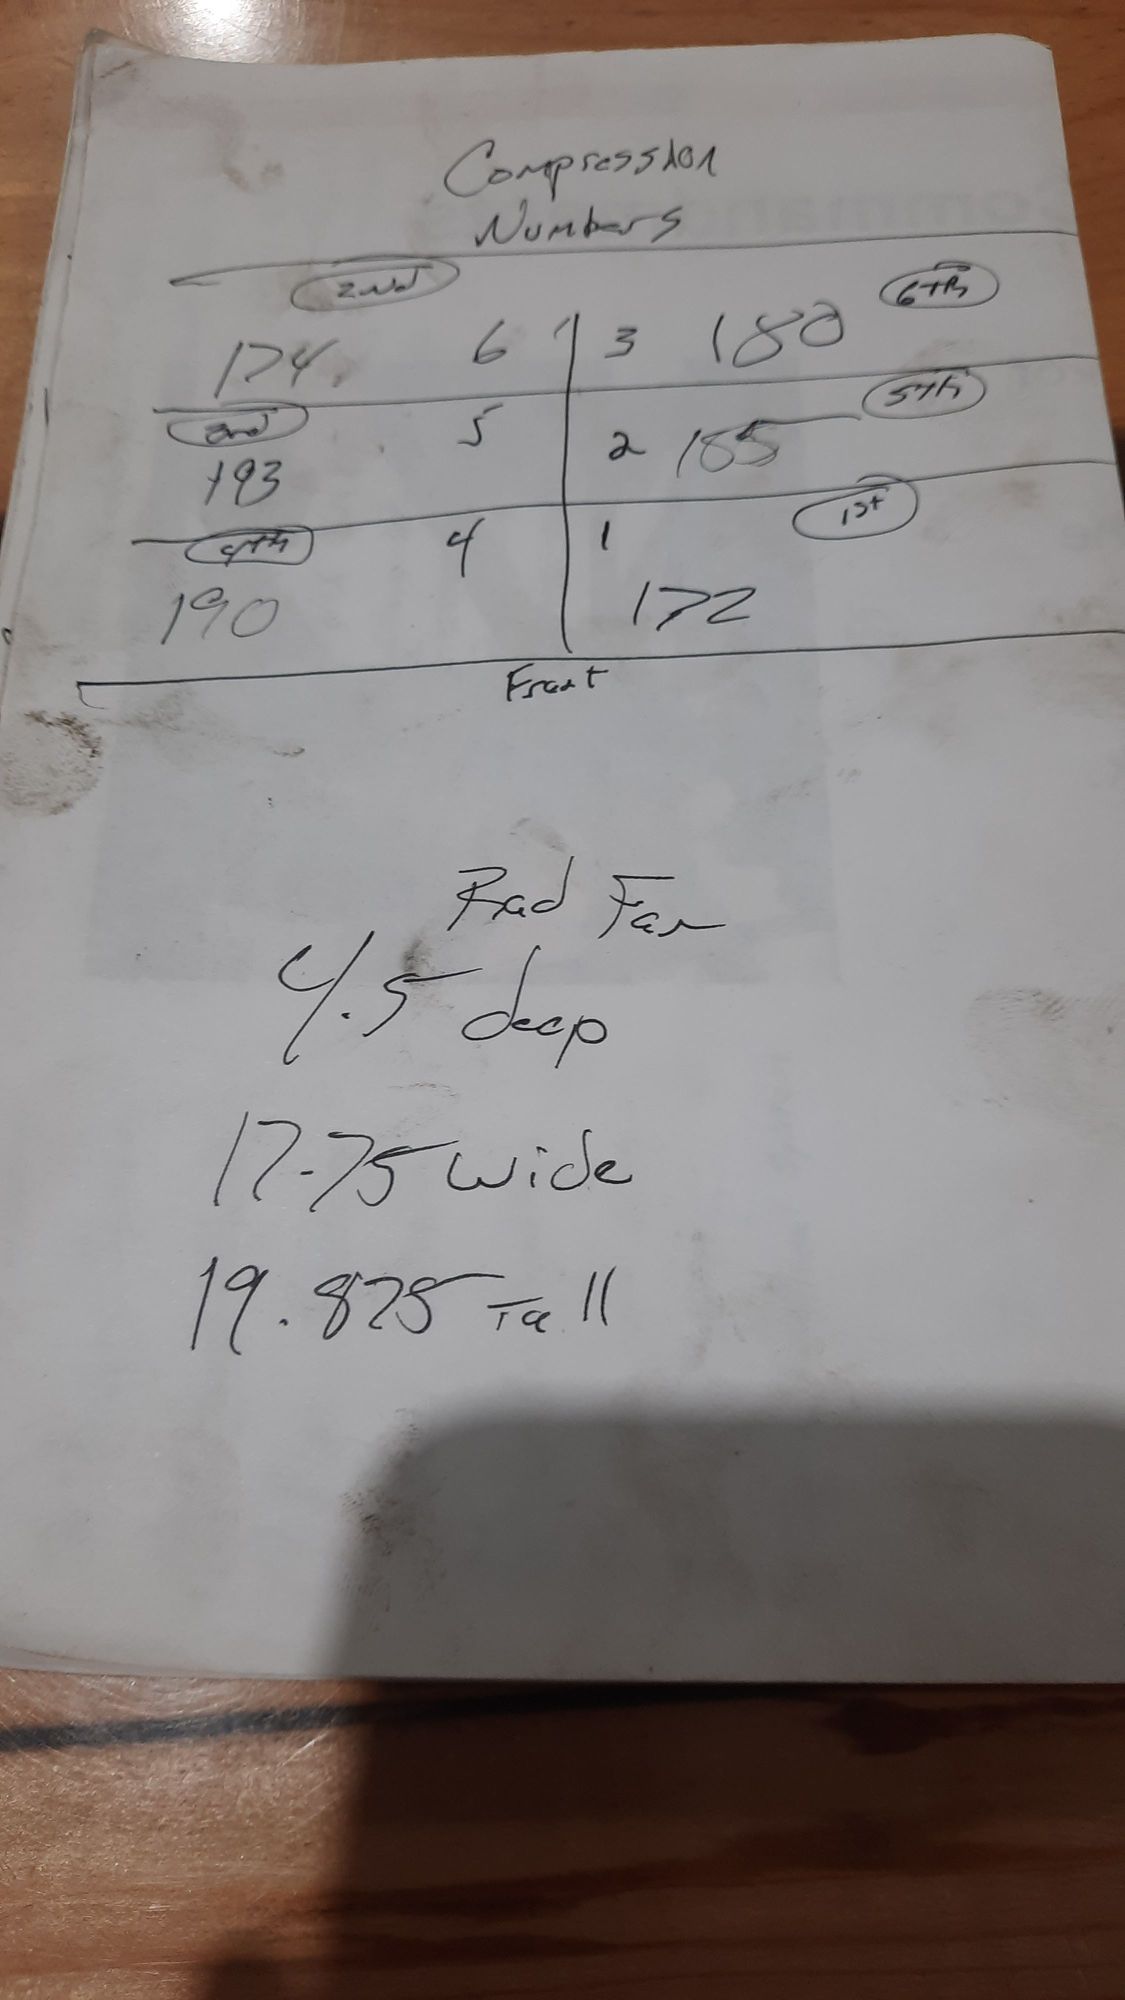 Compression
Numbers
2nd 6th
174 6 3 180
5th
5 2 185
193
4th 4 1 1st
190 172
Front
Rad Fan
4.5 deep
17.75 wide
19.875 Tall